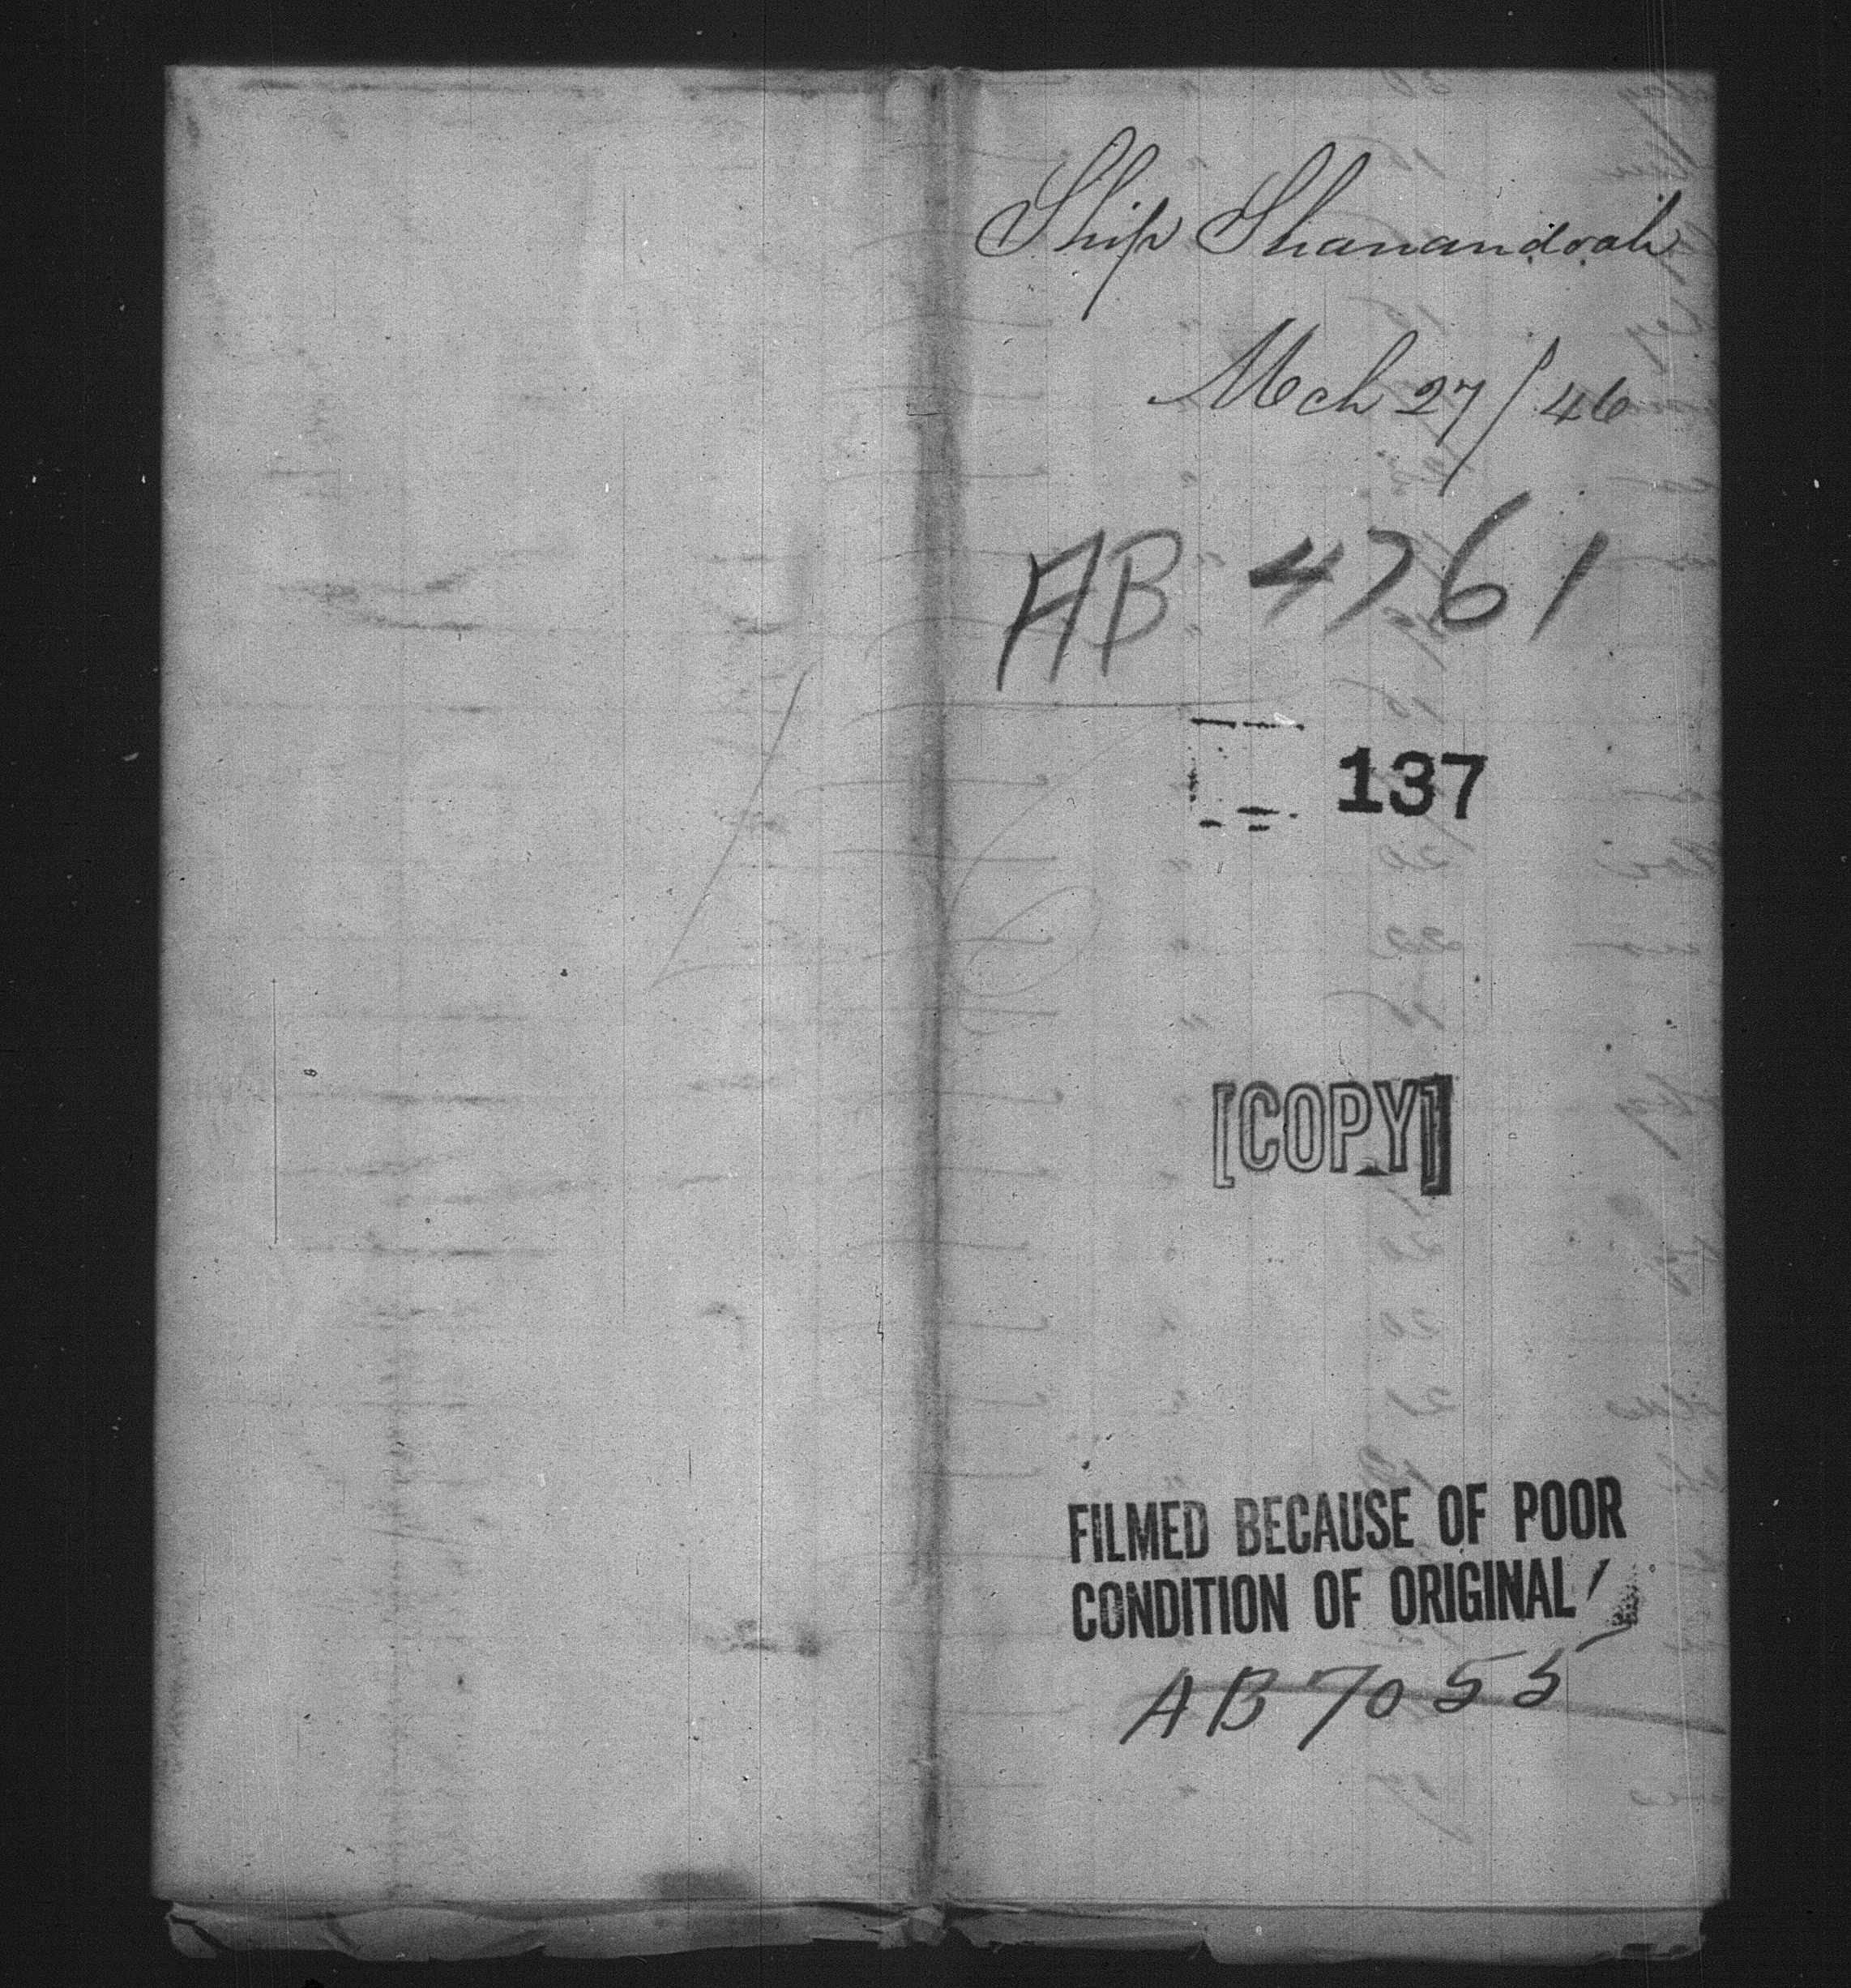 Ship Shanandoah
Mch 27/46
AB 4761
137
[COPY]
FILMED BECAUSE OF POOR
CONDITION OF ORIGINAL
AB 7055